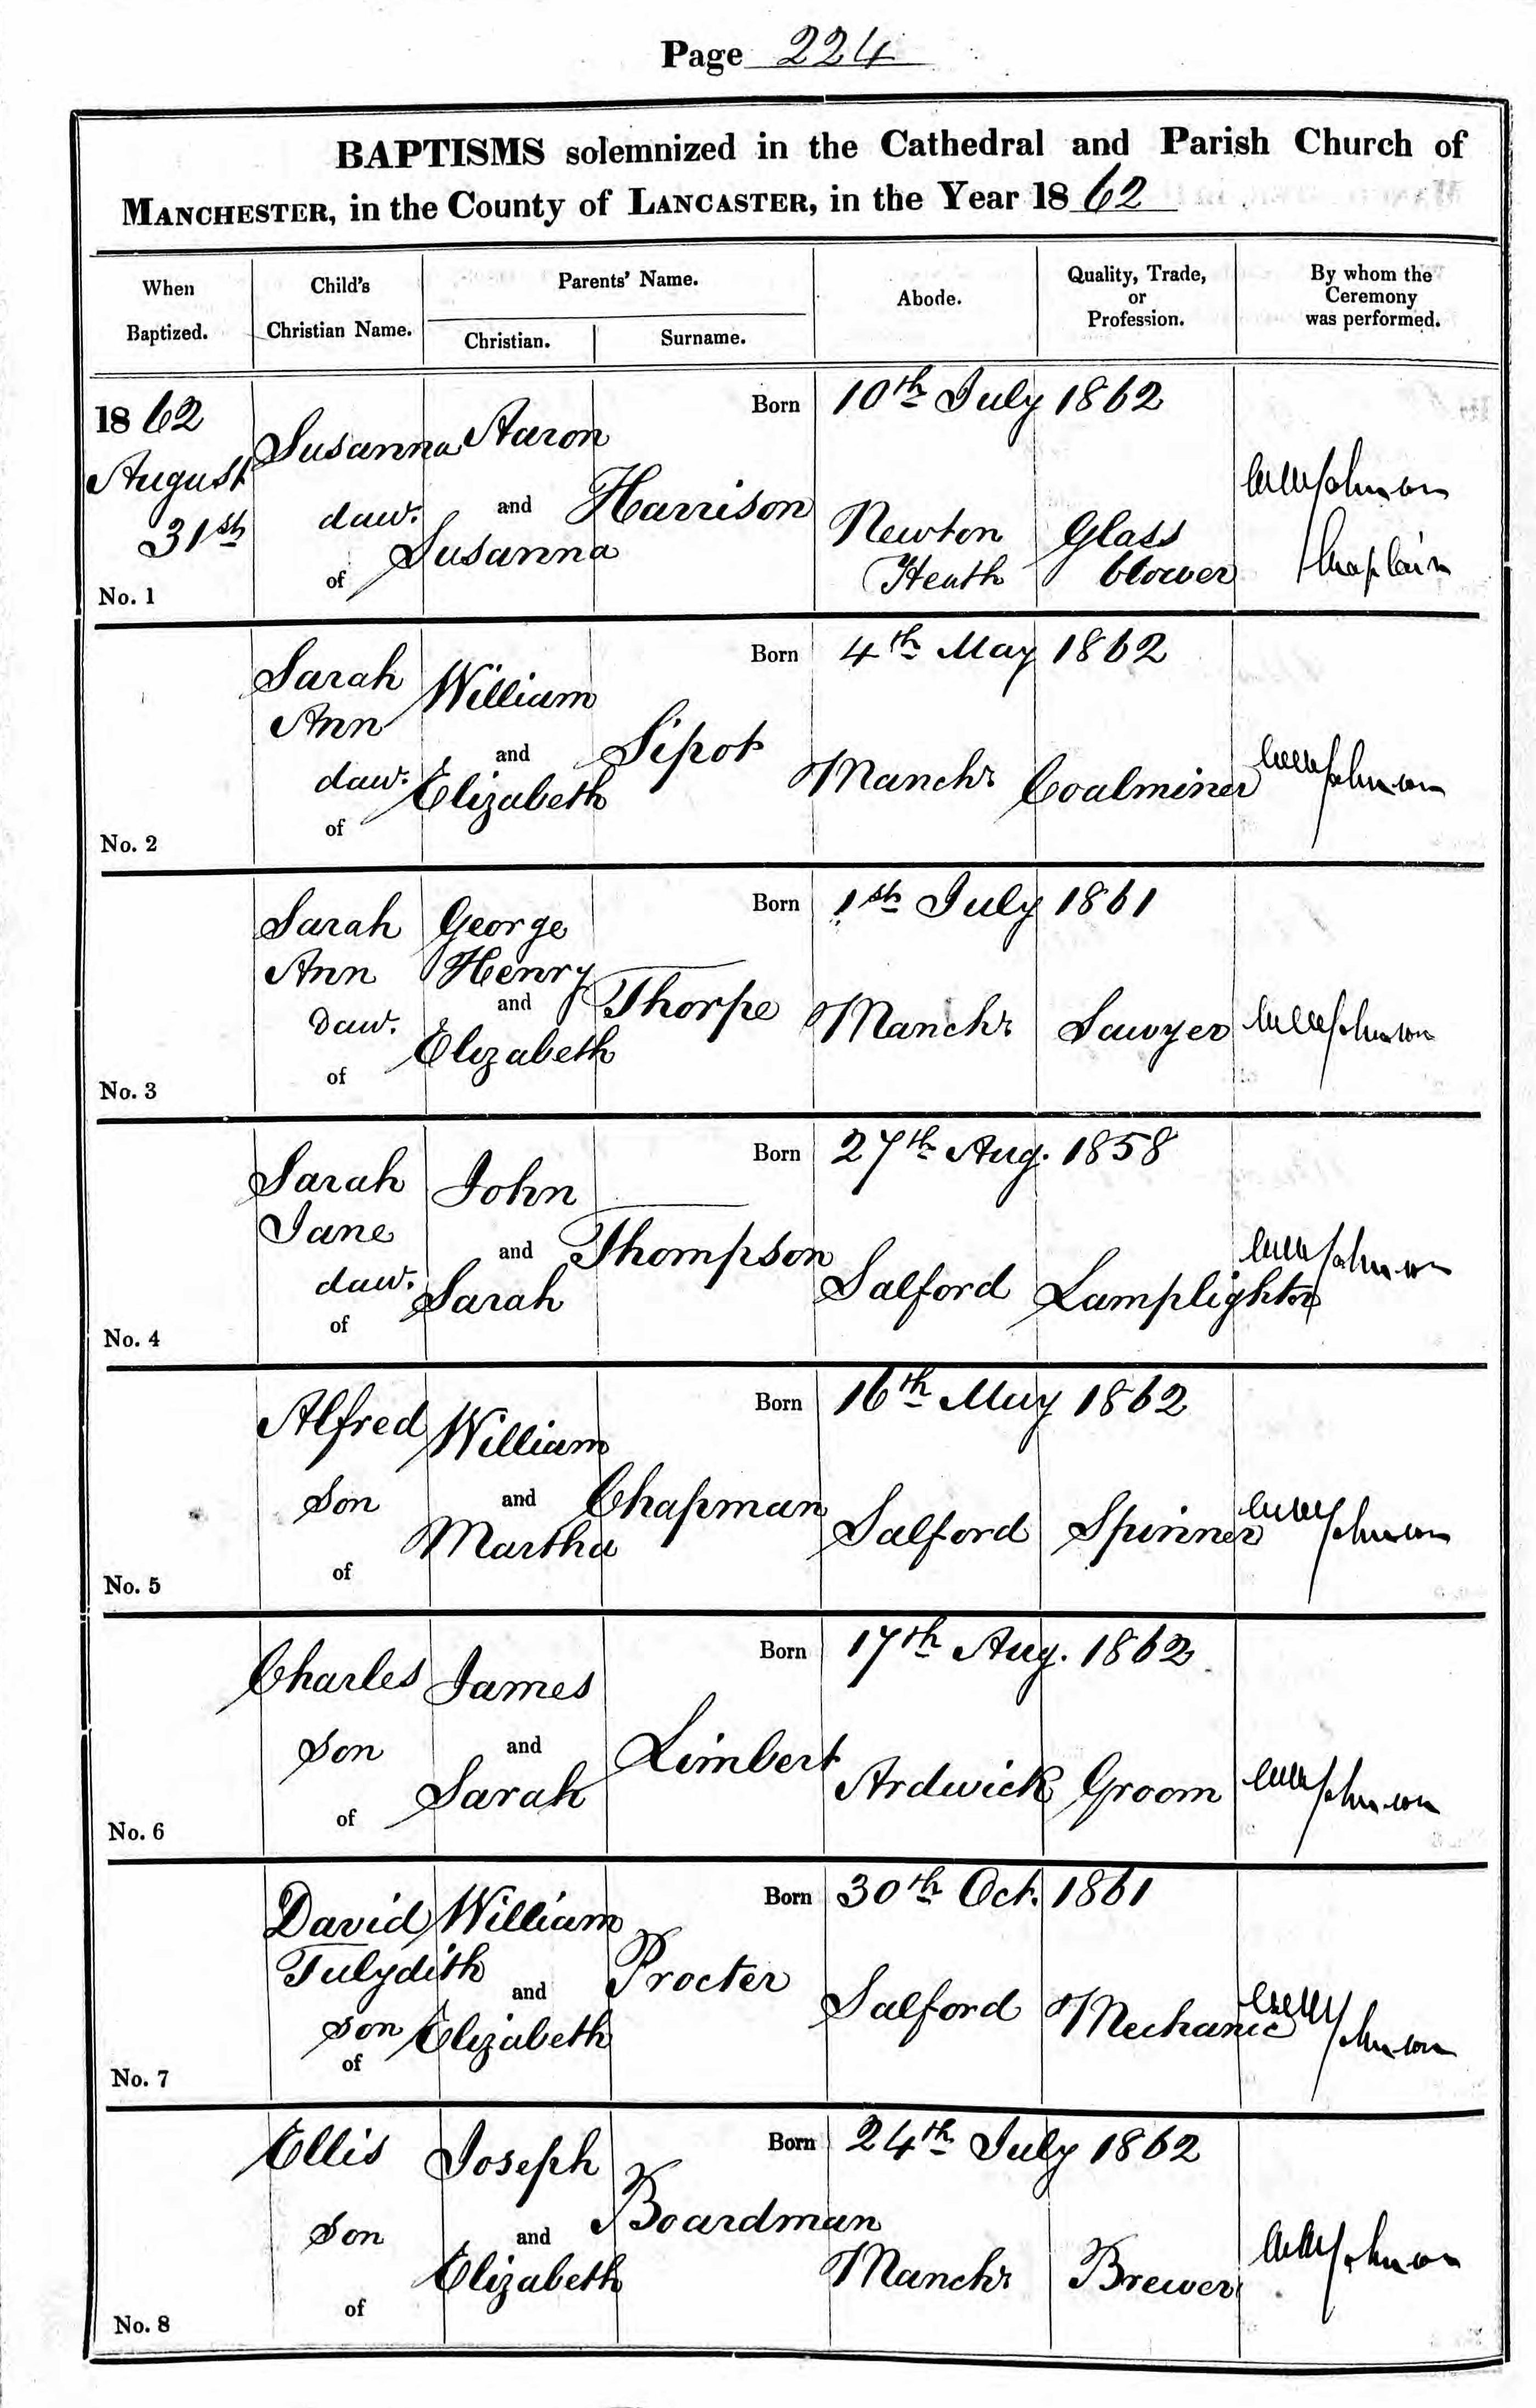 Page 224
BAPTISMS solemnized in the Cathedral and Parish Church of
MANCHESTER, in the County of LANCASTER, in the Year 1862
When Baptized.
Child's Christian Name.
Parents' Name.
Christian.
Surname.
Abode.
Quality, Trade, or Profession.
By whom the Ceremony was performed.
1862
August
31st
No. 1
Susanna
daw.
of
Aaron
and
Susanna
Harrison
Born 10th July 1862
Newton
Heath
Glass
blower
Johnson
Chaplain
No. 2
Sarah
Ann
daw.
of
William
and
Elizabeth
Sipot
Born 4th May 1862
Manchr
Coalminer
Johnson
No. 3
Sarah
Ann
Daw.
of
George
Henry
and
Elizabeth
Thorpe
Born 1st July 1861
Manchr
Sawyer
Johnson
No. 4
Sarah
Jane
daw.
of
John
and
Sarah
Thompson
Born 27th Aug. 1858
Salford
Lamplighter
Johnson
No. 5
Alfred
Son
of
William
and
Martha
Chapman
Born 16th May 1862
Salford
Spinner
Johnson
No. 6
Charles
Son
of
James
and
Sarah
Limbert
Born 17th Aug. 1862
Ardwick
Groom
Johnson
No. 7
David
Tulydith
Son
of
William
and
Elizabeth
Procter
Born 30th Oct. 1861
Salford
Mechanic
Johnson
No. 8
Ellis
Son
of
Joseph
and
Elizabeth
Boardman
Born 24th July 1862
Manchr
Brewer
Johnson